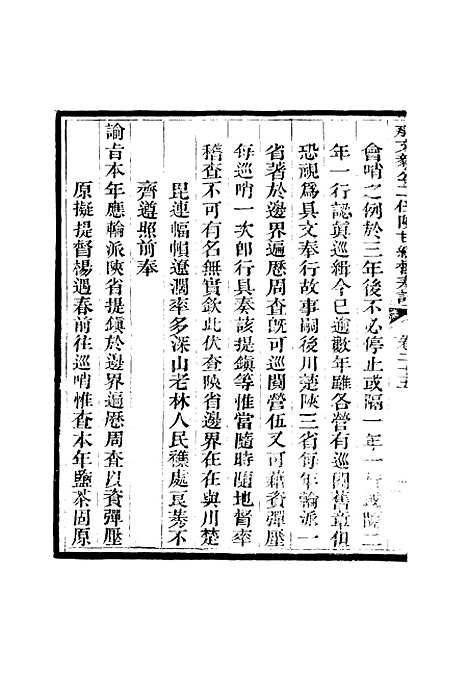 那文毅公二任陝甘總督奏議 卷二十五
會哨之例於三年後不必停止或隔一年一行或隔二
年一行認眞巡緝今已逾數年雖各營有巡閱舊章但
恐視爲具文奉行故事嗣後川楚陝三省每年輪派一
省著於邊界遍歷周查旣可巡閱營伍又可藉資彈壓
每巡哨一次卽行具奏該提鎭等惟當隨時隨地督率
稽查不可有名無實欽此伏查陝省邊界在在與川楚
毘連幅幀遼濶率多深山老林人民襍處良莠不
齊遵照前奉
諭旨本年應輪派陝省提鎭於邊界遍歷周查以資彈壓
原擬提督楊遇春前往巡哨惟查本年鹽茶固原